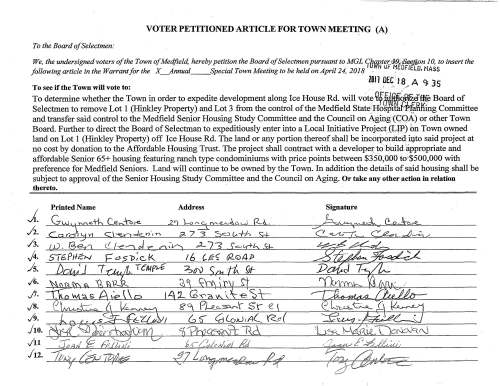 VOTER PETITIONED ARTICLE FOR TOWN MEETING (A)
To the Board of Selectmen:
We, the undersigned voters of the Town of Medfield, hereby petition the Board of Selectmen pursuant to MGL Chapter 39, Section 10, to insert the
following article in the Warrant for the X Annual Special Town Meeting to be held on April 24, 2018
TOWN OF MEDFIELD, MASS
2017 DEC 18 A 9 35
OFFICE OF THE
TOWN CLERK
To see if the Town will vote to:
To determine whether the Town in order to expedite development along Ice House Rd. will vote to authorize the Board of
Selectmen to remove Lot 1 (Hinkley Property) and Lot 3 from the control of the Medfield State Hospital Planning Committee
and transfer said control to the Medfield Senior Housing Study Committee and the Council on Aging (COA) or other Town
Board. Further to direct the Board of Selectman to expeditiously enter into a Local Initiative Project (LIP) on Town owned
land on Lot 1 (Hinkley Property) off Ice House Rd. The land or any portion thereof shall be incorporated into said project at
no cost by donation to the Affordable Housing Trust. The project shall contract with a developer to build appropriate and
affordable Senior 65+ housing featuring ranch type condominiums with price points between $350,000 to $500,000 with
preference for Medfield Seniors. Land will continue to be owned by the Town. In addition the details of said housing shall be
subject to approval of the Senior Housing Study Committee and the Council on Aging. Or take any other action in relation
thereto.
Printed Name Address Signature
1. Gwynneth Centore 27 Longmeadow Rd. Gwynneth Centore
2. Carolyn Clendenin 273 South St
3. W. Ben Clendenin 273 South St
4. STEPHEN FOSDICK 16 LEE ROAD Stephen Fosdick
5. David Temple TEMPLE 300 South St David
6. NORMA BARR 39 St Norma Barr
7. Thomas Aiello 142 Granite St Thomas Aiello
8. Christine J Kenney 89 Pleasant St Christine J Kenney
9. 65 Colonial Rd
10. Rd Lisa Marie Donovan
11 Jean E 65 Colonial Rd Jean E
12. TONY CENTORE 27 Longmeadow Rd Tony Centore